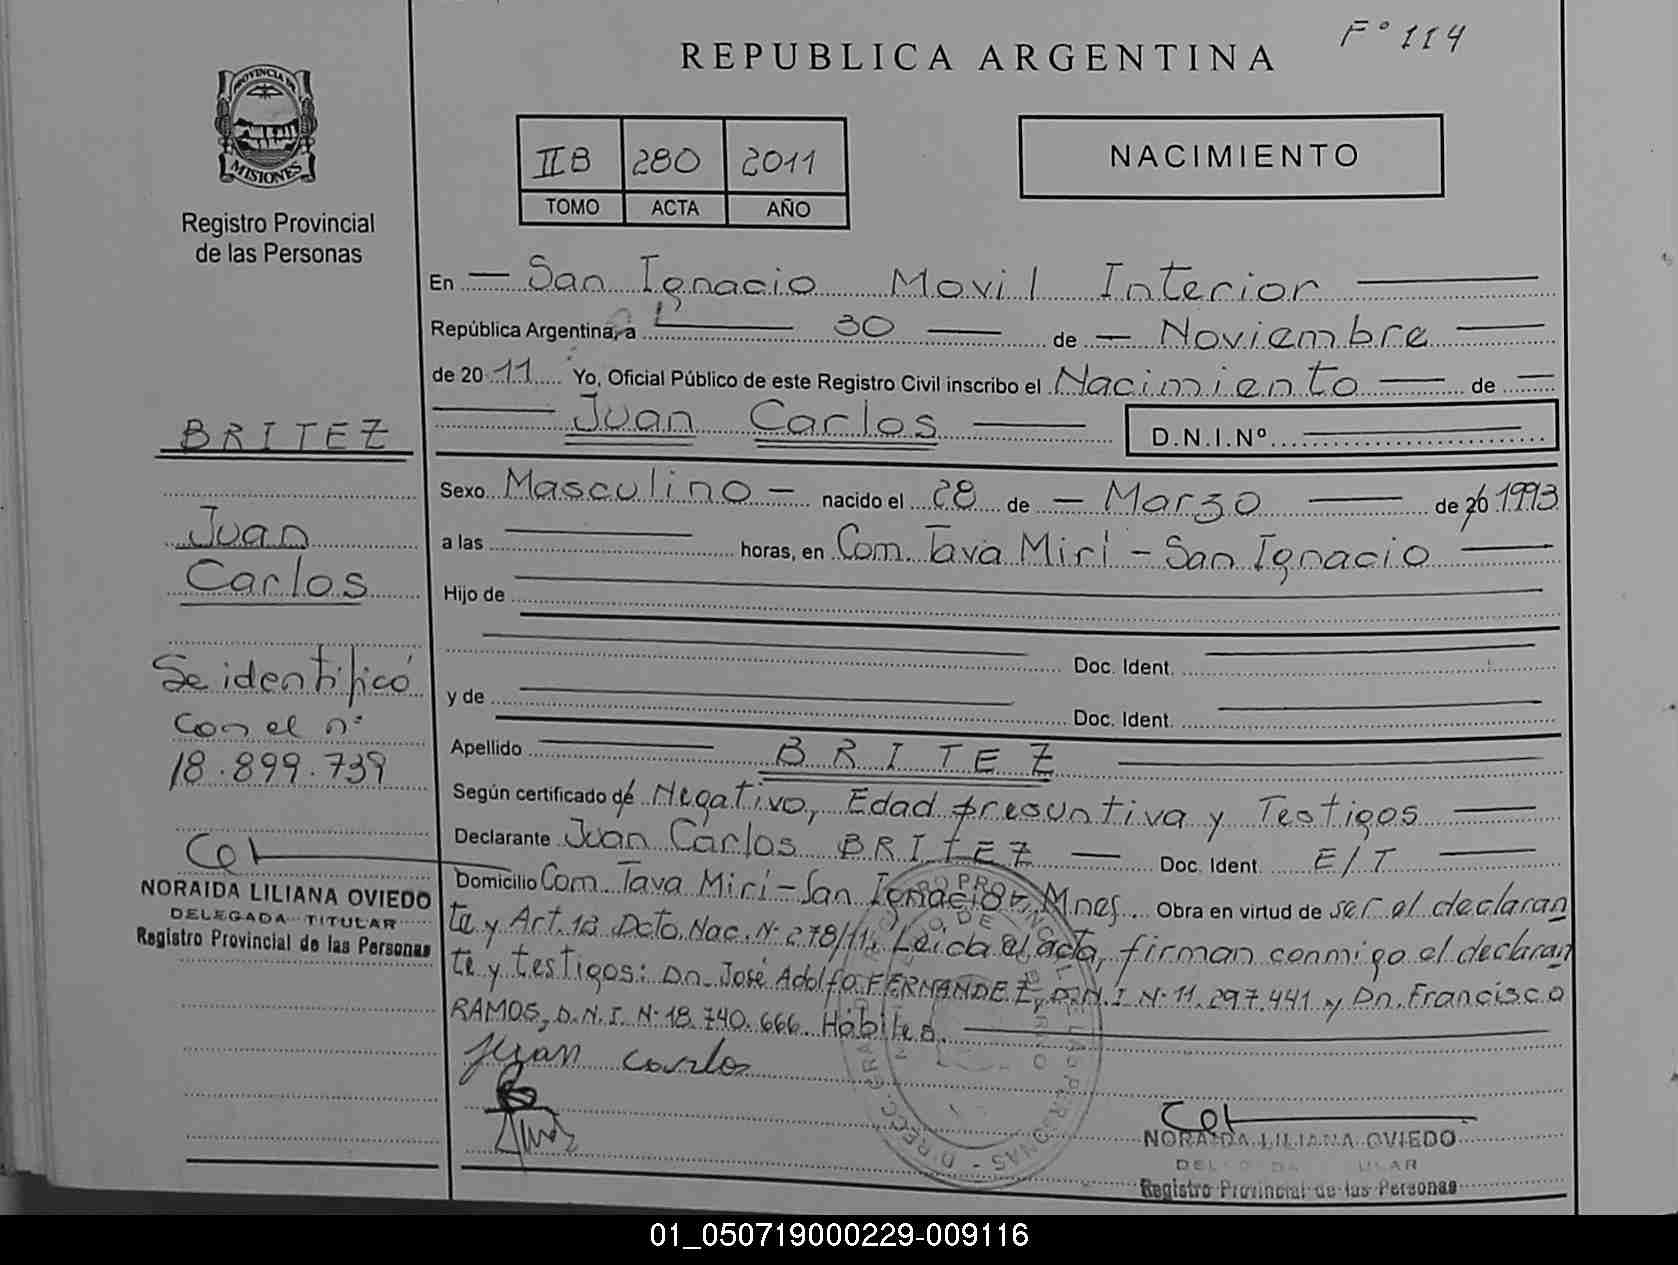 F° 114
REPUBLICA ARGENTINA
PROVINCIA DE
MISIONES
Registro Provincial
de las Personas
IIB 280 2011
TOMO ACTA AÑO
NACIMIENTO
En San Ignacio Movil Interior
República Argentina, a 30 de Noviembre
de 20 11 Yo, Oficial Público de este Registro Civil inscribo el Nacimiento de
Juan Carlos D.N.I.Nº
Sexo Masculino nacido el 28 de Marzo de 20 1993
a las horas, en Com. Tava Mirí - San Ignacio
Hijo de
Doc. Ident.
y de Doc. Ident.
Apellido BRITEZ
Según certificado de Negativo, Edad presuntiva y Testigos
Declarante Juan Carlos BRITEZ Doc. Ident. E/T
Domicilio Com. Tava Mirí - San Ignacio, Mnes. Obra en virtud de ser el declaran
te y Art. 1º Dcto. Nac. Nº 278/11, Leída el acta, firman conmigo el declaran
te y testigos: Dn. José Adolfo FERNANDEZ, D.N.I Nº 11.297.441 y Dn. Francisco
RAMOS, D.N.I. Nº 18.740.666. Hábiles.
Juan Carlos
NORAIDA LILIANA OVIEDO
Registro Provincial de las Personas
BRITEZ
Juan
Carlos
Se identificó
con el nº
18.899.739
NORAIDA LILIANA OVIEDO
DELEGADA TITULAR
Registro Provincial de las Personas
01_050719000229-009116